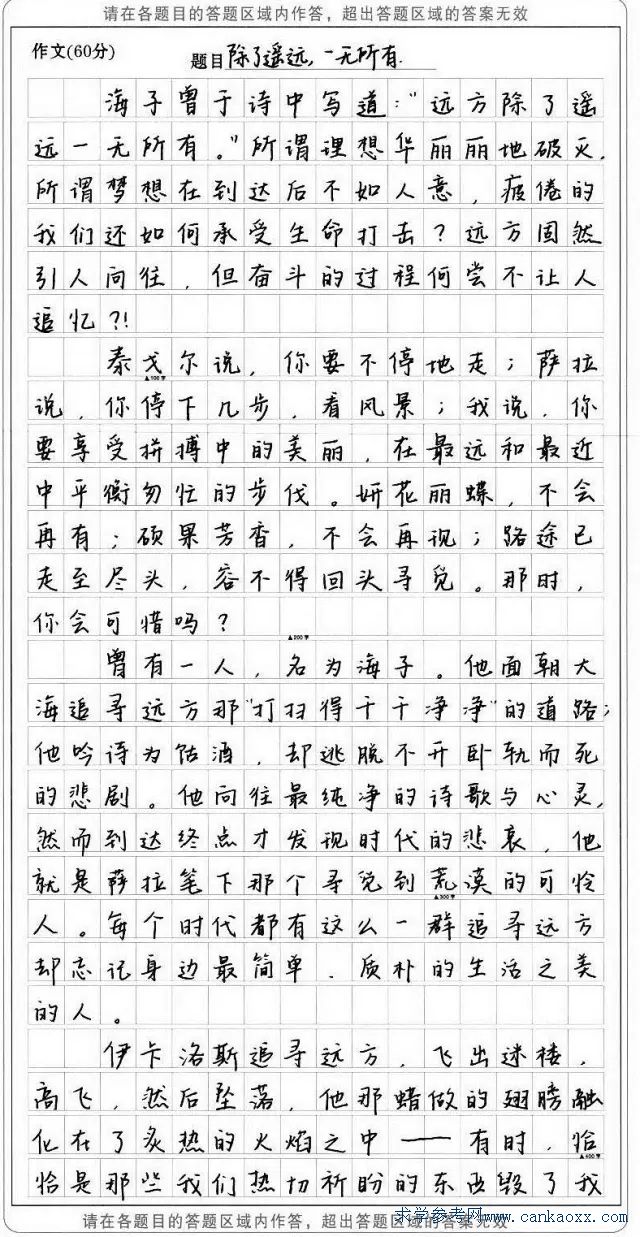 请在各题目的答题区域内作答，超出答题区域的答案无效
作文(60分)
题目除了遥远,一无所有.
海子曾于诗中写道："远方除了遥
远一无所有。"所谓理想华丽丽地破灭,
所谓梦想在到达后不如人意，疲倦的
我们还如何承受生命打击？远方固然
引人向往，但奋斗的过程何尝不让人
追忆?!
泰戈尔说，你要不停地走；萨拉
▲100字
说，你停下几步，看风景；我说，你
要享受拼搏中的美丽，在最远和最近
中平衡匆忙的步伐。妍花丽蝶，不会
再有；硕果芳香，不会再现；路途已
走至尽头，容不得回头寻觅。那时，
你会可惜吗？
▲200字
曾有一人，名为海子。他面朝大
海追寻远方那"打扫得干干净净"的道路;
他吟诗为酤酒，却逃脱不开卧轨而死
的悲剧。他向往最纯净的诗歌与心灵,
然而到达终点才发现时代的悲哀，他
就是萨拉笔下那个寻觅到荒漠的可怜
▲300字
人。每个时代都有这么一群追寻远方
却忘记身边最简单、质朴的生活之美
的人。
伊卡洛斯追寻远方，飞出迷楼，
高飞，然后坠落，他那蜡做的翅膀融
化在了炙热的火焰之中——有时，恰
▲400字
恰是那些我们热切祈盼的东西毁了我
请在各题目的答题区域内作答，超出答题区域的答案无效
求学参考网www.cankaoxx.com